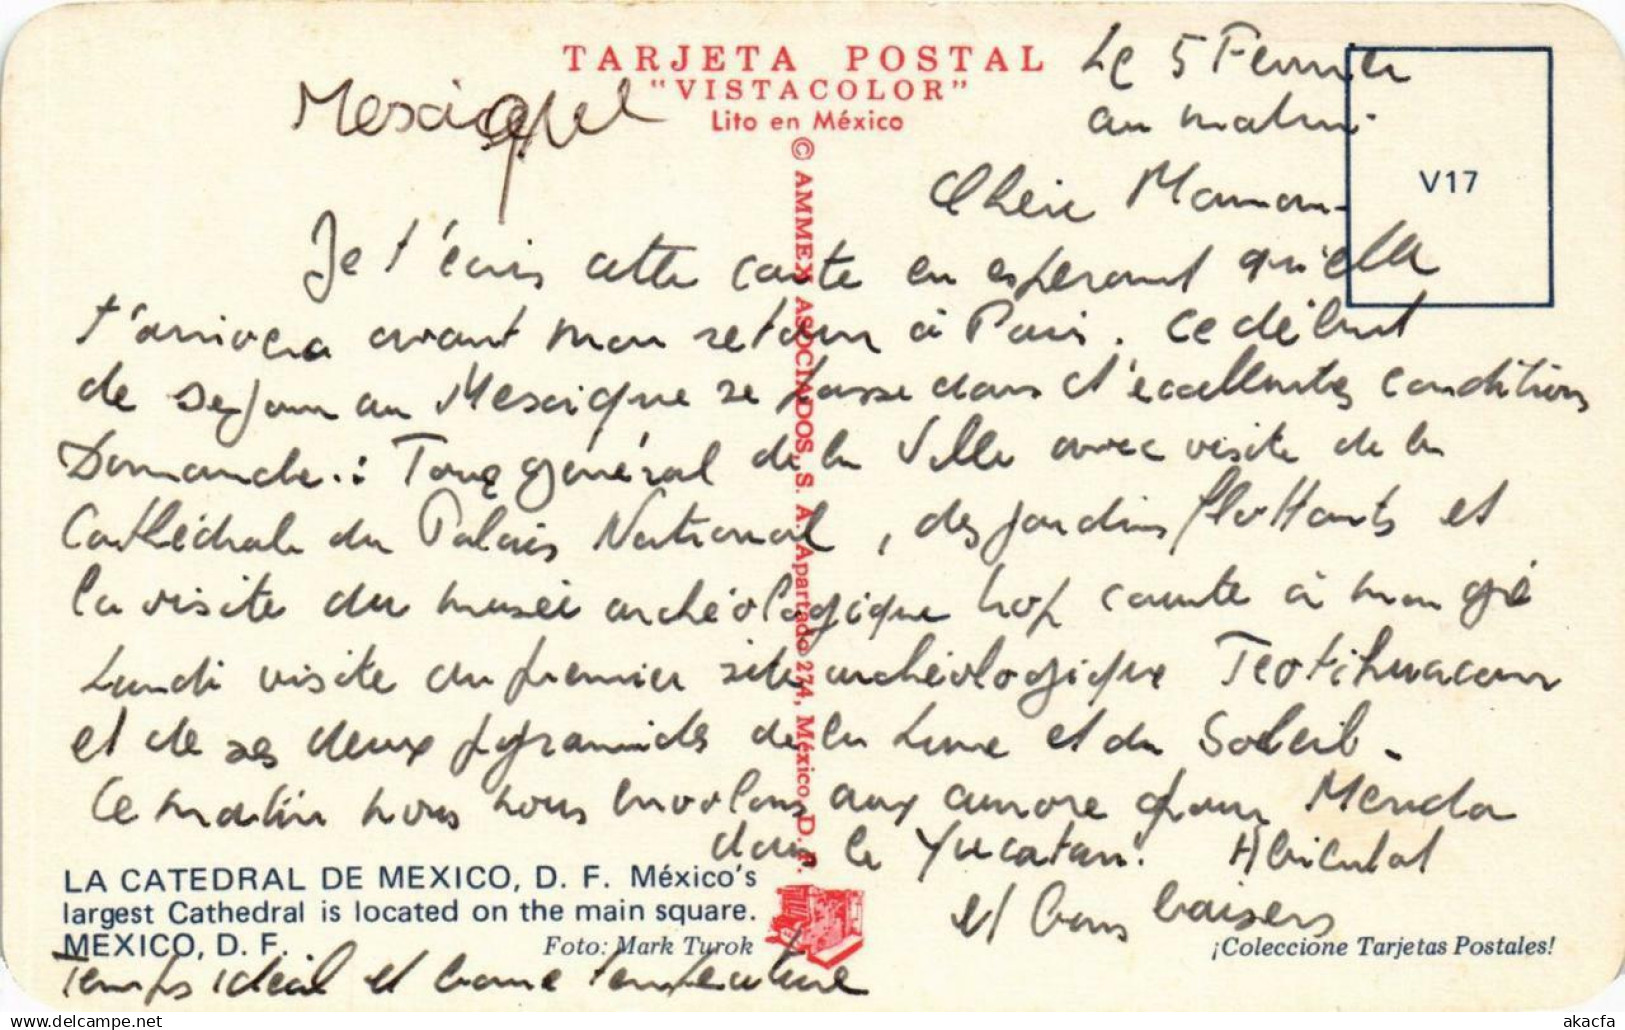 TARJETA POSTAL
"VISTACOLOR"
Lito en México
Le 5 Fevrier
au matin
Mexique
V17
Chère Maman
Je t'écris cette carte en esperant qu'elle
t'arrivera avant mon retour à Paris. Ce début
de sejour au Mexique se passe dans d'excellentes conditions
Dimanche : Tour général de la Ville avec visite de la
Cathédrale du Palais National, des jardins flottants et
la visite du musée archéologique trop courte à mon gré
Lundi visite au premier site archéologique Teotihuacan
et de ses deux pyramides de la Lune et du Soleil.
Ce matin nous nous envolons aux aurore pour Merida
dans le Yucatan.
et bons baisers
Temps idéal et bonne température
© AMMEX ASOCIADOS, S. A. Apartado 274, México, D. F.
LA CATEDRAL DE MEXICO, D. F. México's
largest Cathedral is located on the main square.
MEXICO, D. F. Foto: Mark Turok
¡Coleccione Tarjetas Postales!
https://www.delcampe.net
akacfa